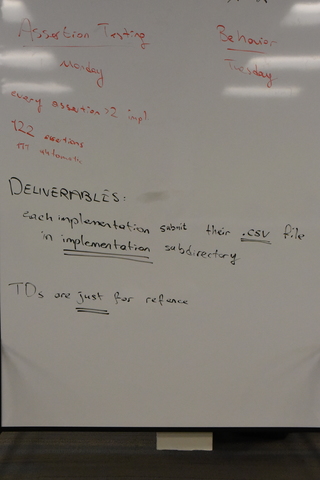 Assertion Testing
Behavior
Monday
Tuesday
every assertion >2 impl.
122 assertions
automatic
DELIVERABLES:
each implementation submit their .CSV file
in implementation subdirectory
TDs are just for refance